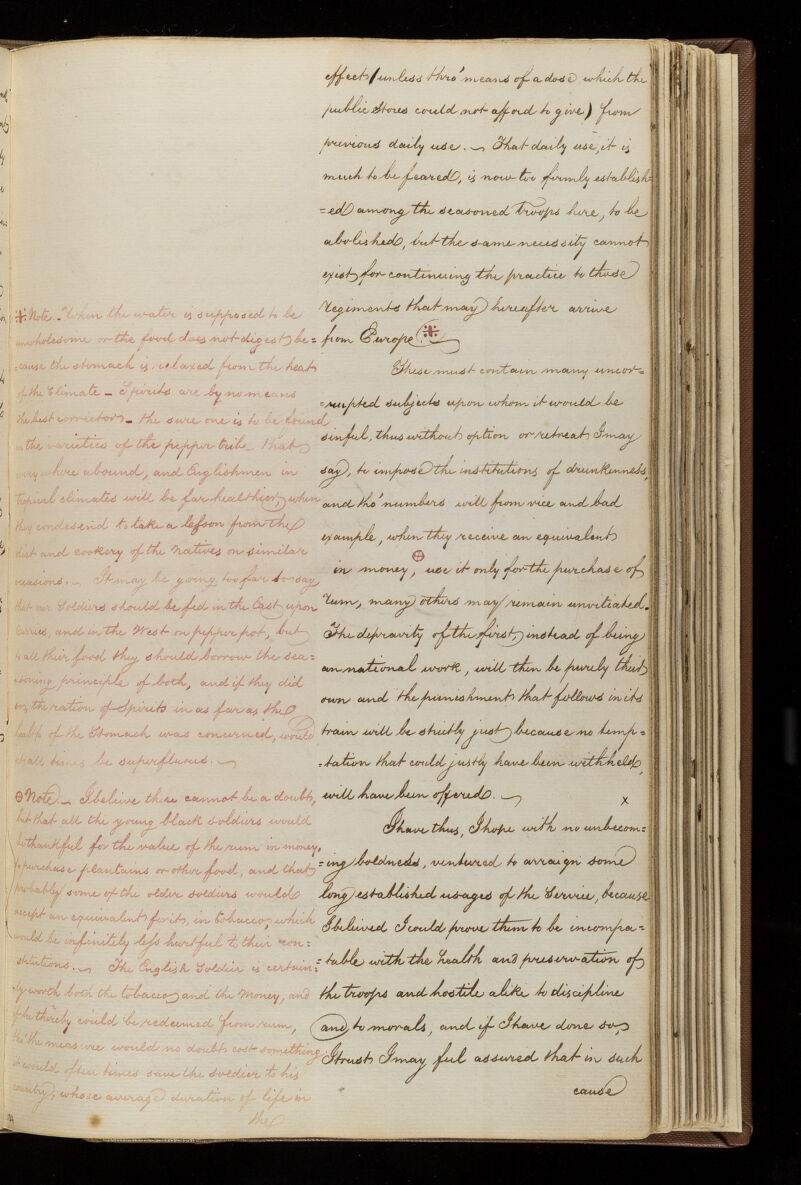 effect (unless thro' means of a dose which the
public Stores could not afford to give) from
previous daily use. — That daily use, it is
much to be feared, is now too firmly establish=
=ed among the seasoned troops here, to be
abolished, but the same necessity cannot
exist for continuing the practice to those
Regiments that may hereafter arrive
from Europe. ※
These must contain many uncor=
=rupted subjects upon whom it would be
sinful, thus without option or retreat I may
say, to impose the institutions of drunkenness,
and tho' numbers will from vice and bad
example, when they receive an equivalent
in money, ⊕ use it only for the purchase of
rum, many others may remain unvitiated.
The depravity of the first instead of being
an national work, will then be purely their
own and the punishment that follows in its
train will be strictly just because no temp=
=tation that could justly have been withheld,
will have been offered. — x
I have thus, I hope with no unbecom=
=ing boldness, ventured to arraign some
long established usages of the Service, because
I believed I could prove them to be incompa=
=table with the health and preservation of
the troops and hostile alike to discipline
and to morals, and if I have done so,
I trust I may feel assured that in such
cause
※ Note — When the water is supposed to be
unwholesome or the food does not digest be=
=cause the stomach is relaxed from the heat
of the Climate — Spirits are by no means
the best correctors — the sure one is to be found
in the varieties of the pepper tribe that
every where abound, and Englishmen in
tropical climates will be far healthier, when
they condesend to take a lesson from the
diet and cookery of the Natives on similar
occasions. — It may be going too far to say
that our Soldiers should be fed in the East upon
Curries, and in the West on pepper pot, but
to all their food they should borrow the sea=
=soning principle of both, and if they did
so, the ration of Spirits in as far as the
health of the Stomach was concerned, would
at all times be superfluous. —
⊕ Note — I believe there cannot be a doubt,
but that all the young black soldiers would
be thankful for the value of the rum in money,
to purchase plantains or other food, and that
probably some of the older soldiers would
accept an equivalent for it, in tobacco, which
would be infinitely less hurtful to their con=
stitutions. — The English Soldier is certain=
=ly worth both the tobacco and the money, and
if he thereby could be redeemed from rum,
tho' the measure would no doubt cost something
it would often times save the soldier to his
country, whose average duration of life in
the